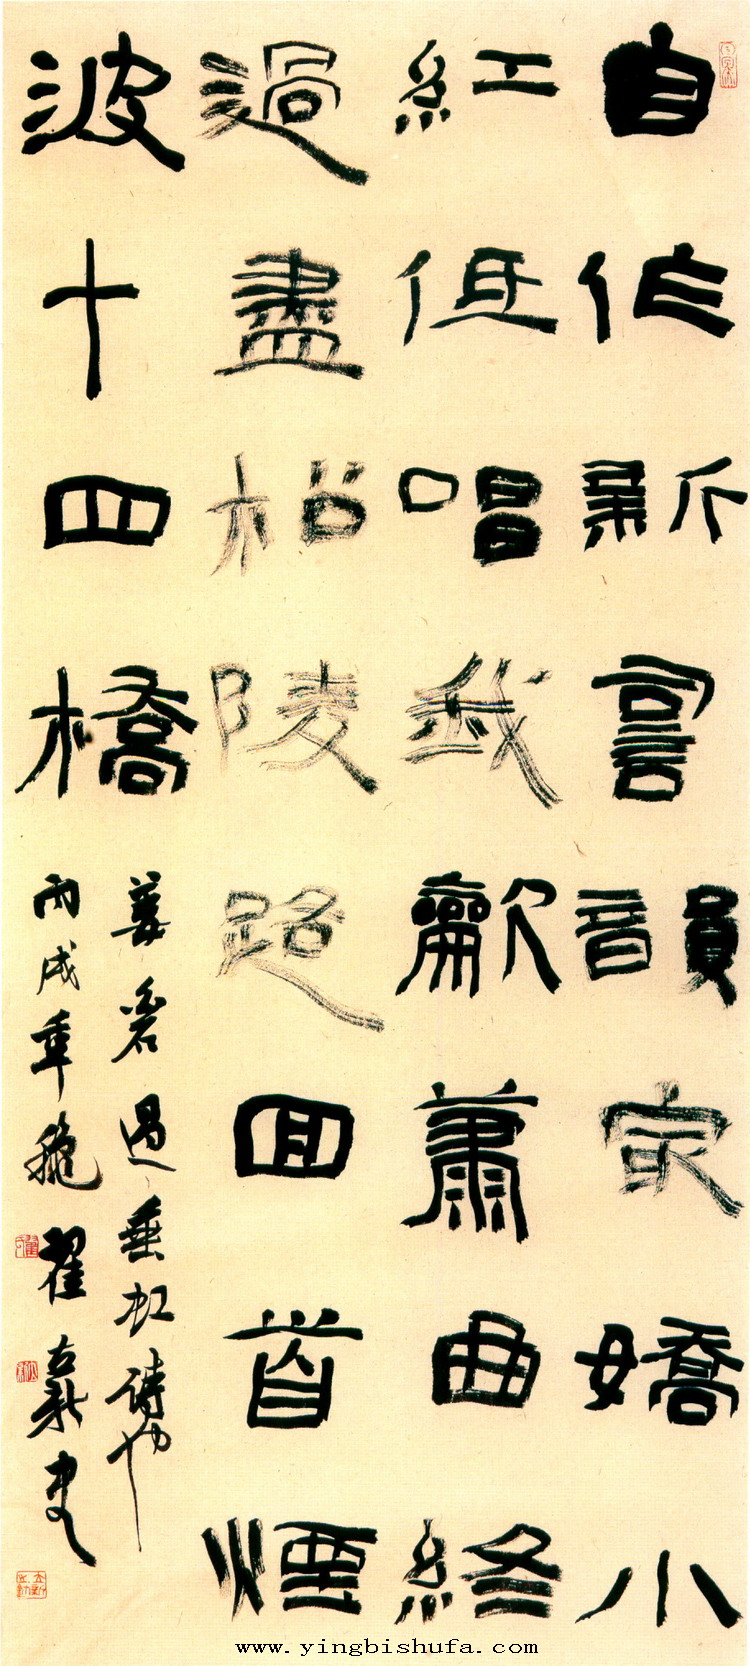 自作新詞韻最嬌小
紅低唱我龡蕭曲終
過盡柗陵路回首煙
波十四橋
姜過垂虹詩也
丙戌年穐翟
www.yingbishufa.com